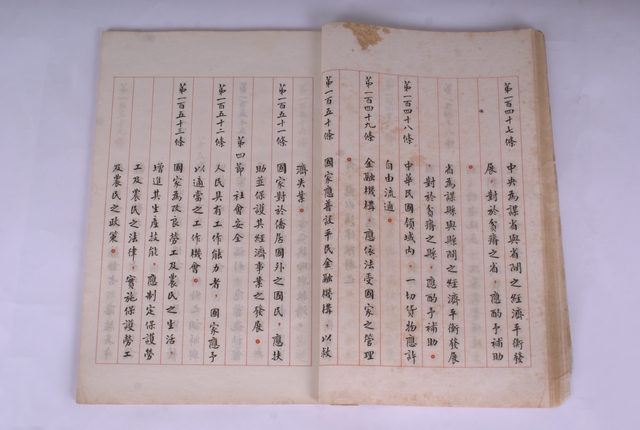 第一百四十七條 中央為謀省與省間之經濟平衡發
展，對於貧瘠之省，應酌予補助
。
省為謀縣與縣間之經濟平衡發展
，對於貧瘠之縣，應酌予補助。
第一百四十八條 中華民國領域內，一切貨物應許
自由流通。
第一百四十九條 金融機構，應依法受國家之管理
。
第一百五十條 國家應普設平民金融機構，以救
濟失業。
第一百五十一條 國家對於僑居國外之國民，應扶
助並保護其經濟事業之發展。
第四節 社會安全
第一百五十二條 人民具有工作能力者，國家應予
以適當之工作機會。
第一百五十三條 國家為改良勞工及農民之生活，
增進其生產技能，應制定保護勞
工及農民之法律，實施保護勞工
及農民之政策。